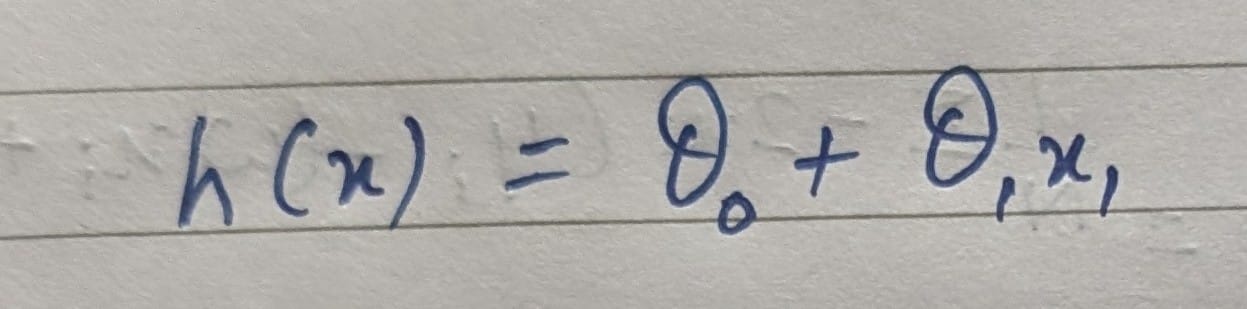 h(x) = θ₀ + θ₁x₁